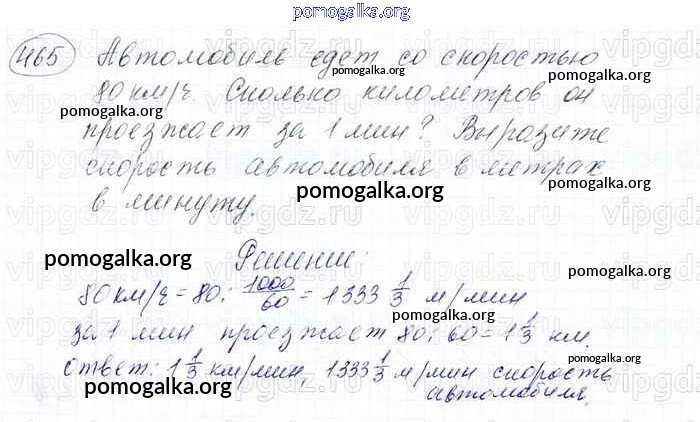 pomogalka.org
465 Автомобиль едет со скоростью
pomogalka.org
80 км/ч. Сколько километров он
pomogalka.org pomogalka.org
проезжает за 1 мин? Выразите
pomogalka.org
скорость автомобиля в метрах
pomogalka.org
в минуту.
pomogalka.org
Решение:
80 км/ч = 80 : 1000/60 = 1333 1/3 м/мин
pomogalka.org
за 1 мин проезжает 80 : 60 = 1 1/3 км.
pomogalka.org
ответ: 1 1/3 км/мин, 1333 1/3 м/мин скорость
автомобиля.
pomogalka.org
pomogalka.org
vipgdz.ru